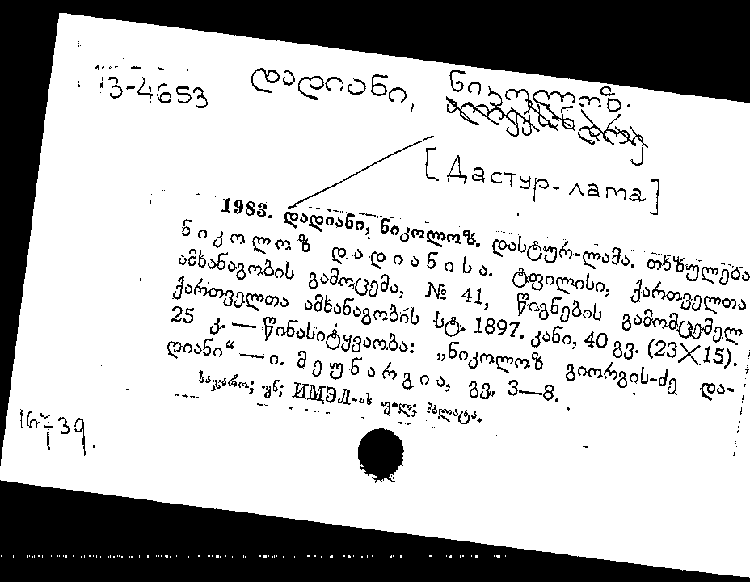 13-4653
დადიანი, ნიკოლოზ.
[Дастур-лама]
1983. დადიანი, ნიკოლოზ. დასტურ-ლამა. თხზულება
ნიკოლოზ დადიანისა. ტფილისი, ქართველთა
ამხანაგობის გამოცემა, № 41, წიგნების გამომცემელ
ქართველთა ამხანაგობის სტ. 1897. კანი, 40 გვ. (23X15).
25 კ. — წინასიტყვაობა: „ნიკოლოზ გიორგის-ძე და-
დიანი“ — ი. მეუნარგია, გვ. 3—8.
საჯარო; უნ; ИМЭЛ-ის
16 39.